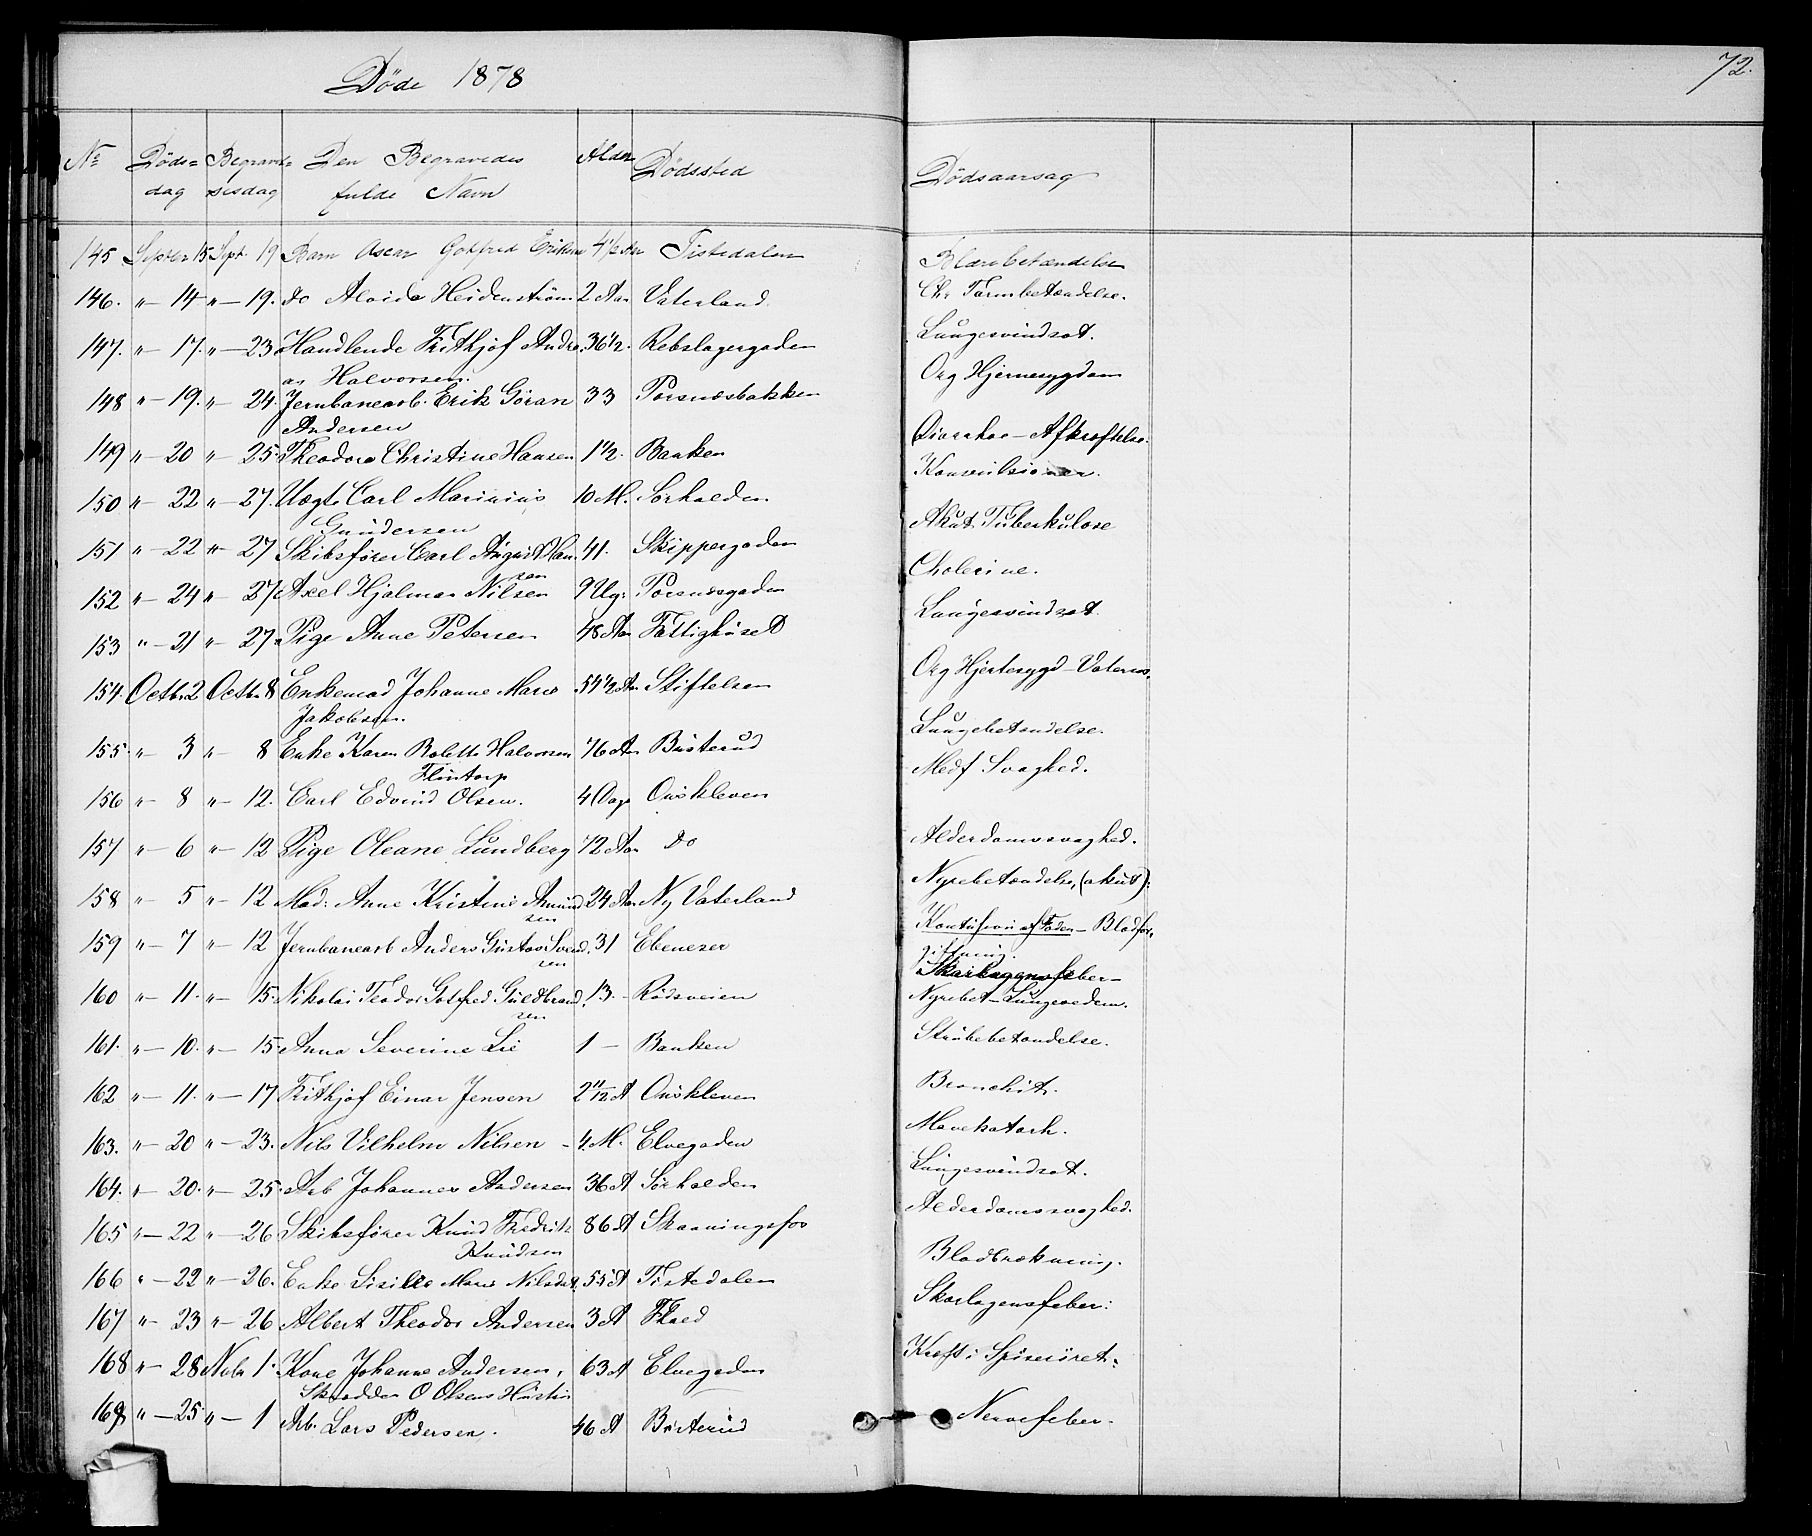 Döde 1878
72.
No Döds= dag Begravel= sesdag Den Begravedes fulde Navn Alder Dödssted Dödsaarsag
145 Septbr 15 Sept. 19 Barn Oscar Gotfred Eriksen 4 1/2 Aar Tistedalen Blærebetændelse
146. " - 14 " - 19. do Alvida Heidenström 2 Aar Vaterland. Chr Tarmbetændelse.
147. " - 17. " - 23 Handlende Frithjof Andre 36 1/2. Rebslagergaden Lungesvindsot.
as Halvorsen.
148 " - 19. " - 24. Jernbanearb. Erik Göran 33 Torsnæsbakken Org Hjernesygdom
Andersen
149 " - 20 " - 25. Theodora Christine Hansen 1 1/2. Banken Diarrhoe - Afkræftelse.
150 " - 22 " - 27. Uægte Carl Marinius 10 M. Sörhalden. Konvulsioner.
Gundersen
151 " - 22 " - 27 Skibsförer Carl August Han 41. Skippergaden Akut Tuberkulose
sen
152 " - 24 " - 27 Axel Hjalmar Nilsen 9 Ug. Torsnæsgaden Cholerine.
153 " - 21 " - 27 Pige Anne Petersen 48 Aar Fattighuset Lungesvindsot.
154. Octbr. 2 Octbr. 8 Enkemad Johanne Marie 54 1/2 Aar Stiftelsen Org Hjertesygd - Vaters.
Jakobsen.
155. " 3 " 8 Enke Karen Bolette Halvorsen 76 Aar Busterud Lungebetændelse.
Flintorp
156 " - 8 " - 12. Carl Edvind Olsen. 4 Dage Ouskleven Medf Svaghed.
157 " - 6 " - 12 Pige Oleane Lundberg 72 Aar do Alderdomssvaghed.
158 " - 5 " - 12 Mad: Anne Kristine Amund 24 Aar Ny Vaterland Nyrebetændelse, (akut).
sen
159 " - 7 " - 12 Jernbanearb Anders Gustav Svend 31 Ebeneser Kontusion af Foden - Blodfor,
sen giftning.
160 " - 11. " - 15. Nikolai Teodor Gotfred Guldbrand 13. - Rödsveien Skarlagensfeber -
sen Nyrebet - Lungeoedem.
161. " - 10. " - 15. Anna Severine Lie 1 - Banken Strubebetændelse.
162 " - 11. " - 17 Frithjof Einar Jensen 2 11/12 A Ouskleven Bronchit.
163. " - 20 " - 23. Nils Vilhelm Nilsen - 4. M. Elvegaden Mavekatarh.
164. " - 20. " - 25. Arb Johannes Andersen 36 A Sörhalden Lungesvindsot.
165 " - 22 " - 26 Skibsförer Knud Fredrik 86 A Skaaningsfos Alderdomssvaghed.
Knudsen
166 " - 22 " - 26. Enke Sisilie Marie Nilsdat. 55 A Tistedalen Blodbrækning.
167 " - 23 " - 26 Albert Theodor Andersen 3 A Flaed Skarlagensfeber.
168 " - 28 Novbr 1. Kone Johanne Andersen, 63 A Elvegaden Kræft i Spiseröret.
Skrædder O Olsens Hustru
169 " - 25 " - 1 Arb. Lars Pedersen. 46 A Busterud Nervefeber.